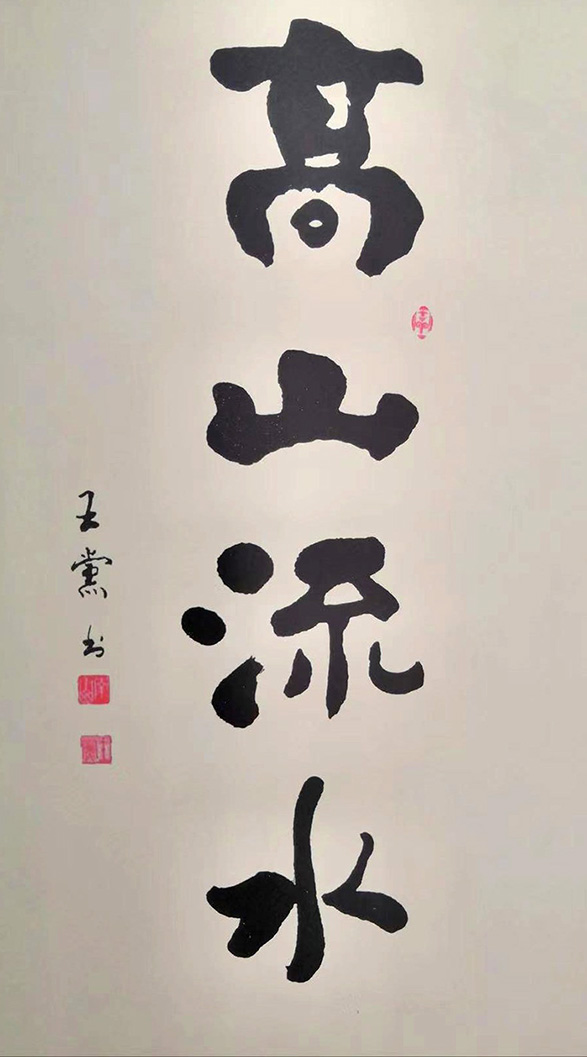 高山流水
王黨书